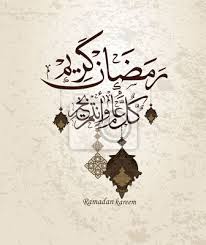 رَمَضَان كَرِيم
كل عام وأنتم بخير
Ramadan kareem